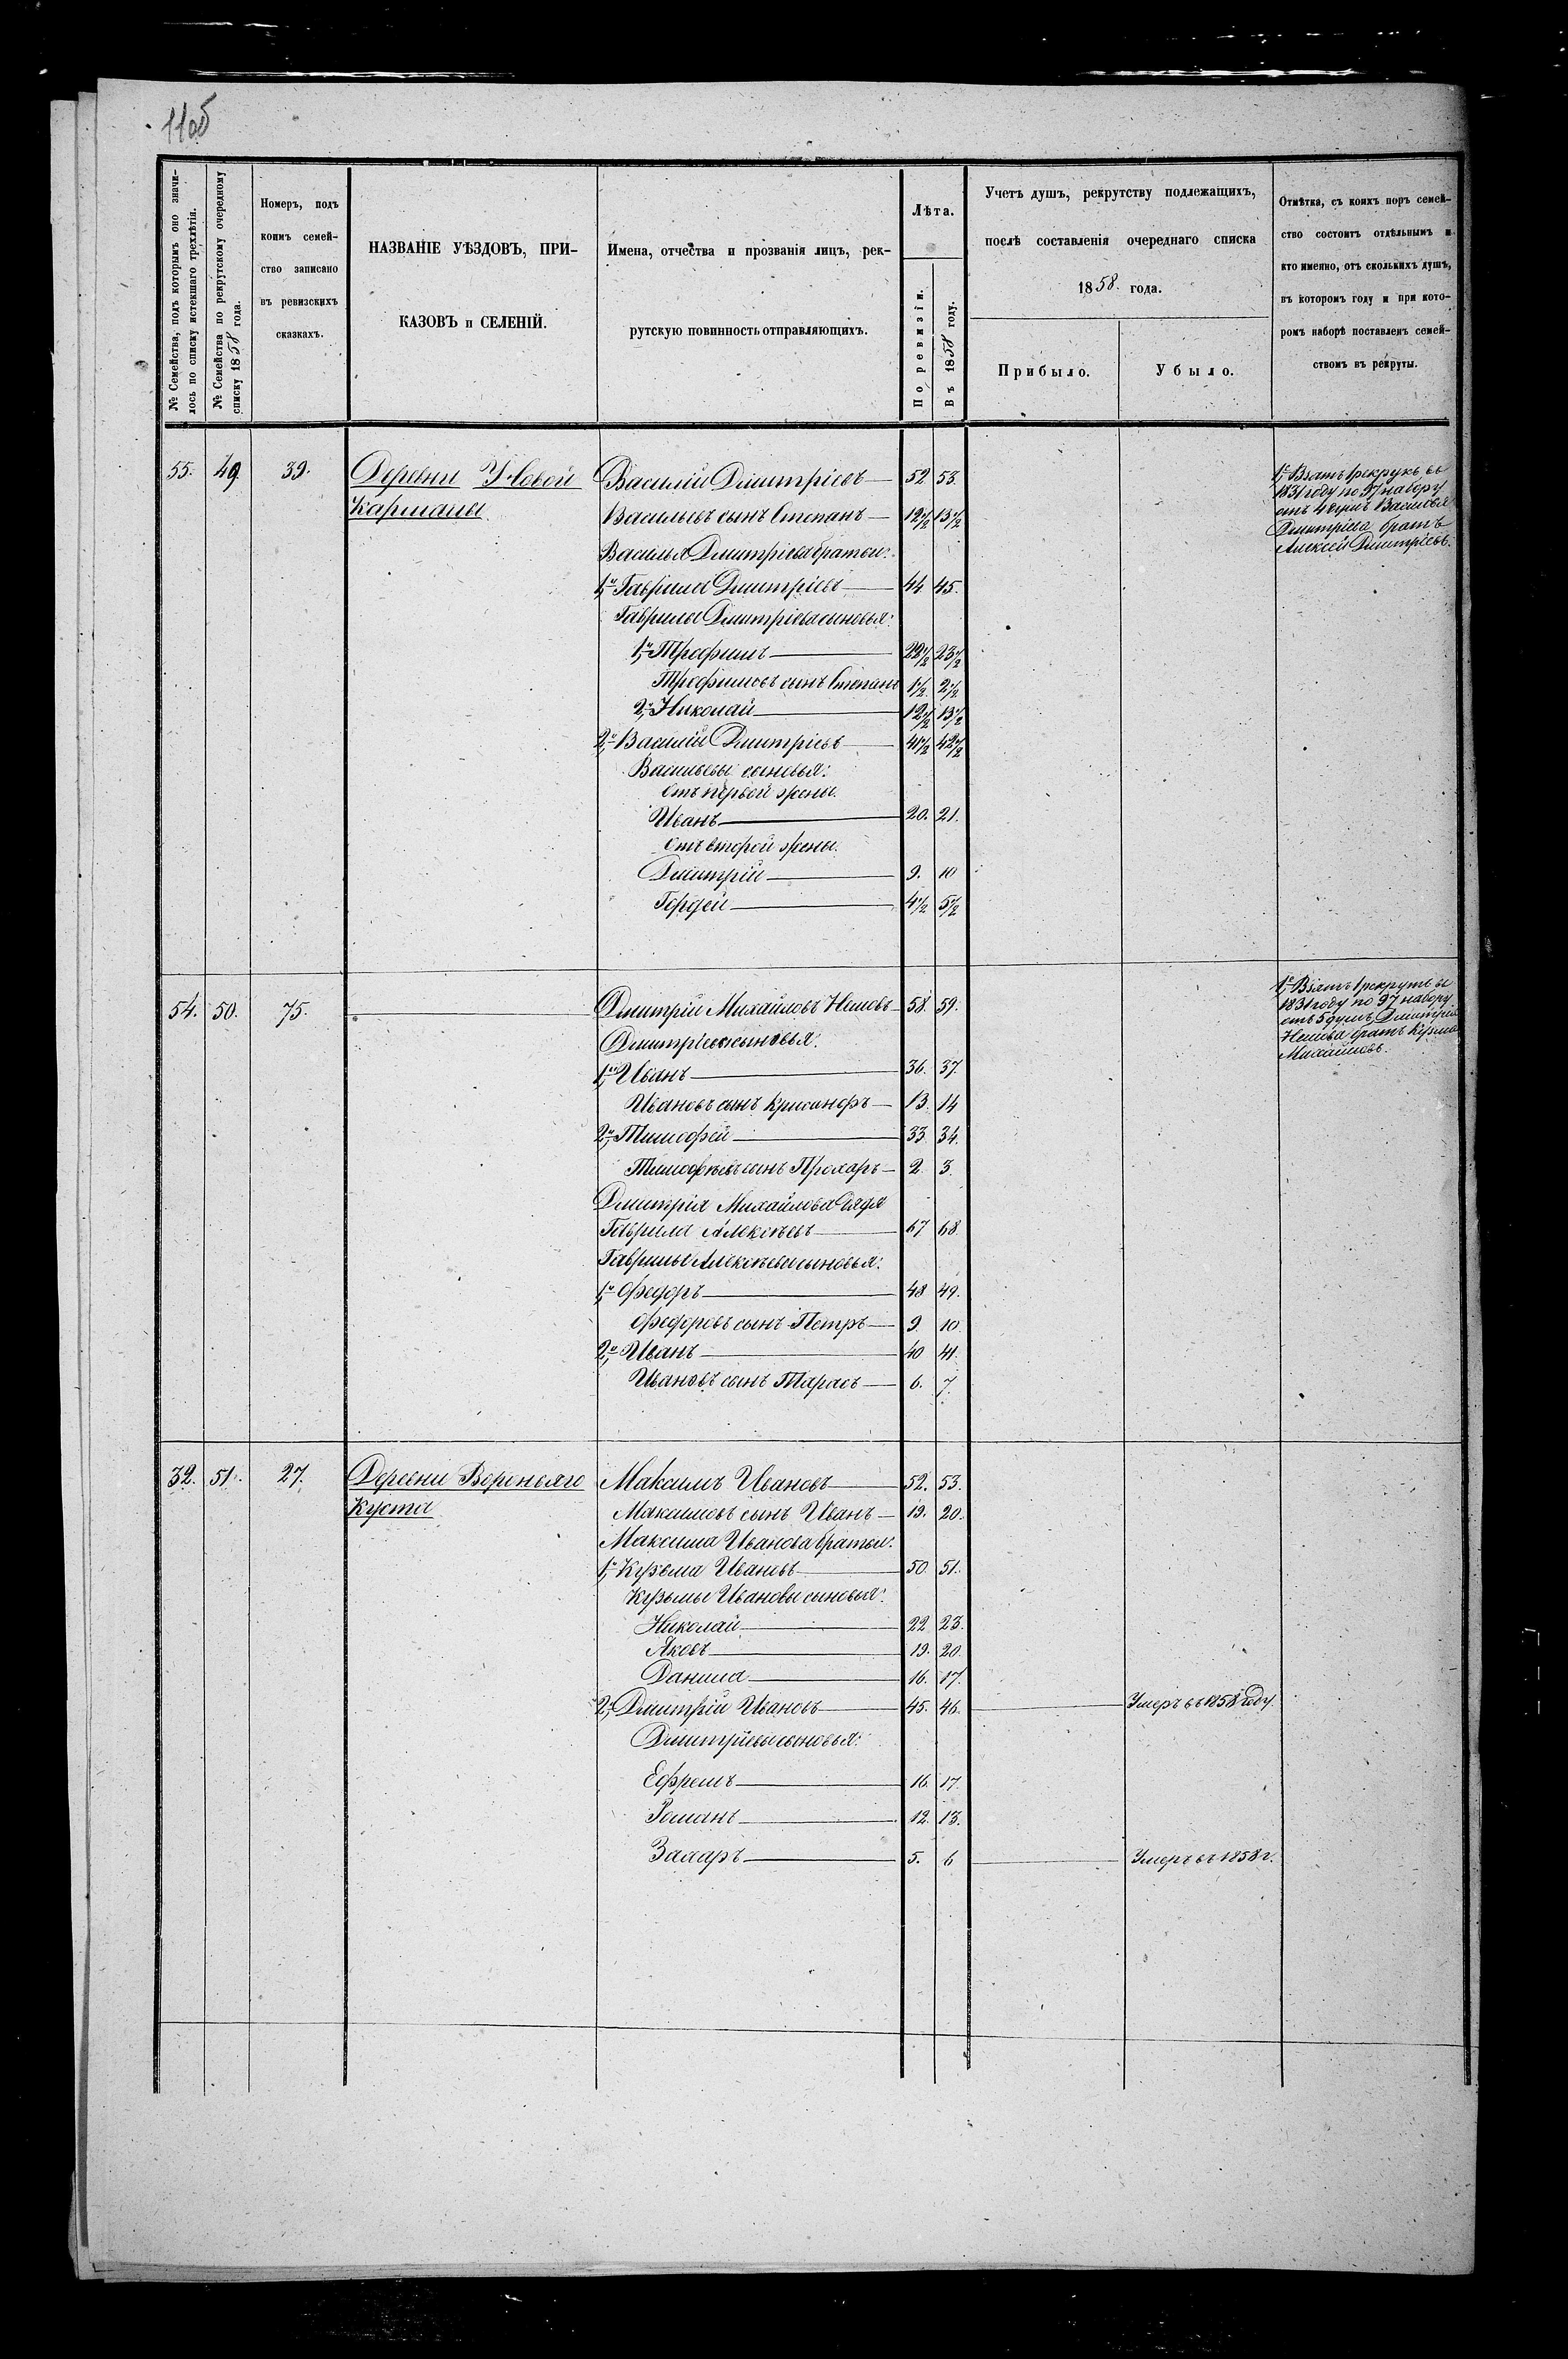 110б
№ Семейства, подъ которымъ оно значи-
лось по списку истекшаго трехлѣтія.
№ Семейства по рекрутскому очередному
списку 1858 года.
Номеръ, подъ
коимъ семей-
ство записано
въ ревизскихъ
сказкахъ.
НАЗВАНІЕ УѢЗДОВЪ, ПРИ-
КАЗОВЪ и СЕЛЕНІЙ.
Имена, отчества и прозванія лицъ, рек-
рутскую повинность отправляющихъ.
Лѣта.
По ревизіи.
Въ 1858 году.
Учетъ душъ, рекрутству подлежащихъ,
послѣ составленія очереднаго списка
1858. года.
Прибыло.
Убыло.
Отмѣтка, съ коихъ поръ семей-
ство состоитъ отдѣльнымъ и
кто именно, отъ сколькихъ душъ,
въ которомъ году и при кото-
ромъ наборѣ поставленъ семей-
ствомъ въ рекруты.
55. 49. 39. Деревни Новой Василій Дмитріевъ 52 53.
Кармалы Васильевъ сынъ Степанъ 12 1/2 13 1/2
Василья Дмитріева братья:
1й Гаврила Дмитріевъ 44 45.
Гаврилы Дмитріева сыновья:
1й Трофимъ 22 1/2 23 1/2
Трофимовъ сынъ Степанъ 1 1/2 2 1/2
2й Николай 12 1/2 13 1/2
2й Василій Дмитріевъ 41 1/2 42 1/2
Васильевы сыновья:
Отъ первой жены.
Иванъ 20. 21.
Отъ второй жены.
Дмитрій 9. 10
Гордей 4 1/2 5 1/2
1й Взятъ въ рекруты въ
1831 году по 97 набору
отъ 4 душъ Василья
Дмитріева братъ
Алексѣй Дмитріевъ.
54. 50. 75. Дмитрій Михайловъ 58. 59.
Дмитріевы сыновья:
1й Иванъ 36. 37.
Ивановъ сынъ Крисанфъ 13. 14
2й Тимофей 33 34.
Тимофѣевъ сынъ Прохоръ 2. 3.
Дмитрія Михайлова дядя
Гаврила Алексѣевъ 67 68.
Гаврилы Алексѣева сыновья:
1й Федоръ 48 49.
Федоровъ сынъ Петръ 9. 10
2й Иванъ 40 41.
Ивановъ сынъ Тарасъ 6. 7.
1й Взятъ въ рекруты въ
1831 году по 97 набору
отъ 5 душъ Дмитрія
братъ Кузма
Михайловъ.
32. 51. 27. Деревни Вороньяго Максимъ Ивановъ 52. 53.
Куста Максимовъ сынъ Иванъ 19. 20.
Максима Иванова братья:
1й Кузьма Ивановъ 50. 51.
Кузьмы Иванова сыновья:
Николай 22 23.
Яковъ 19. 20.
Данила 16. 17.
2й Дмитрій Ивановъ 45. 46. Умеръ въ 1858 году.
Дмитріевы сыновья:
Ефремъ 16. 17.
Романъ 12. 13.
Захаръ 5. 6 Умеръ въ 1858 г.